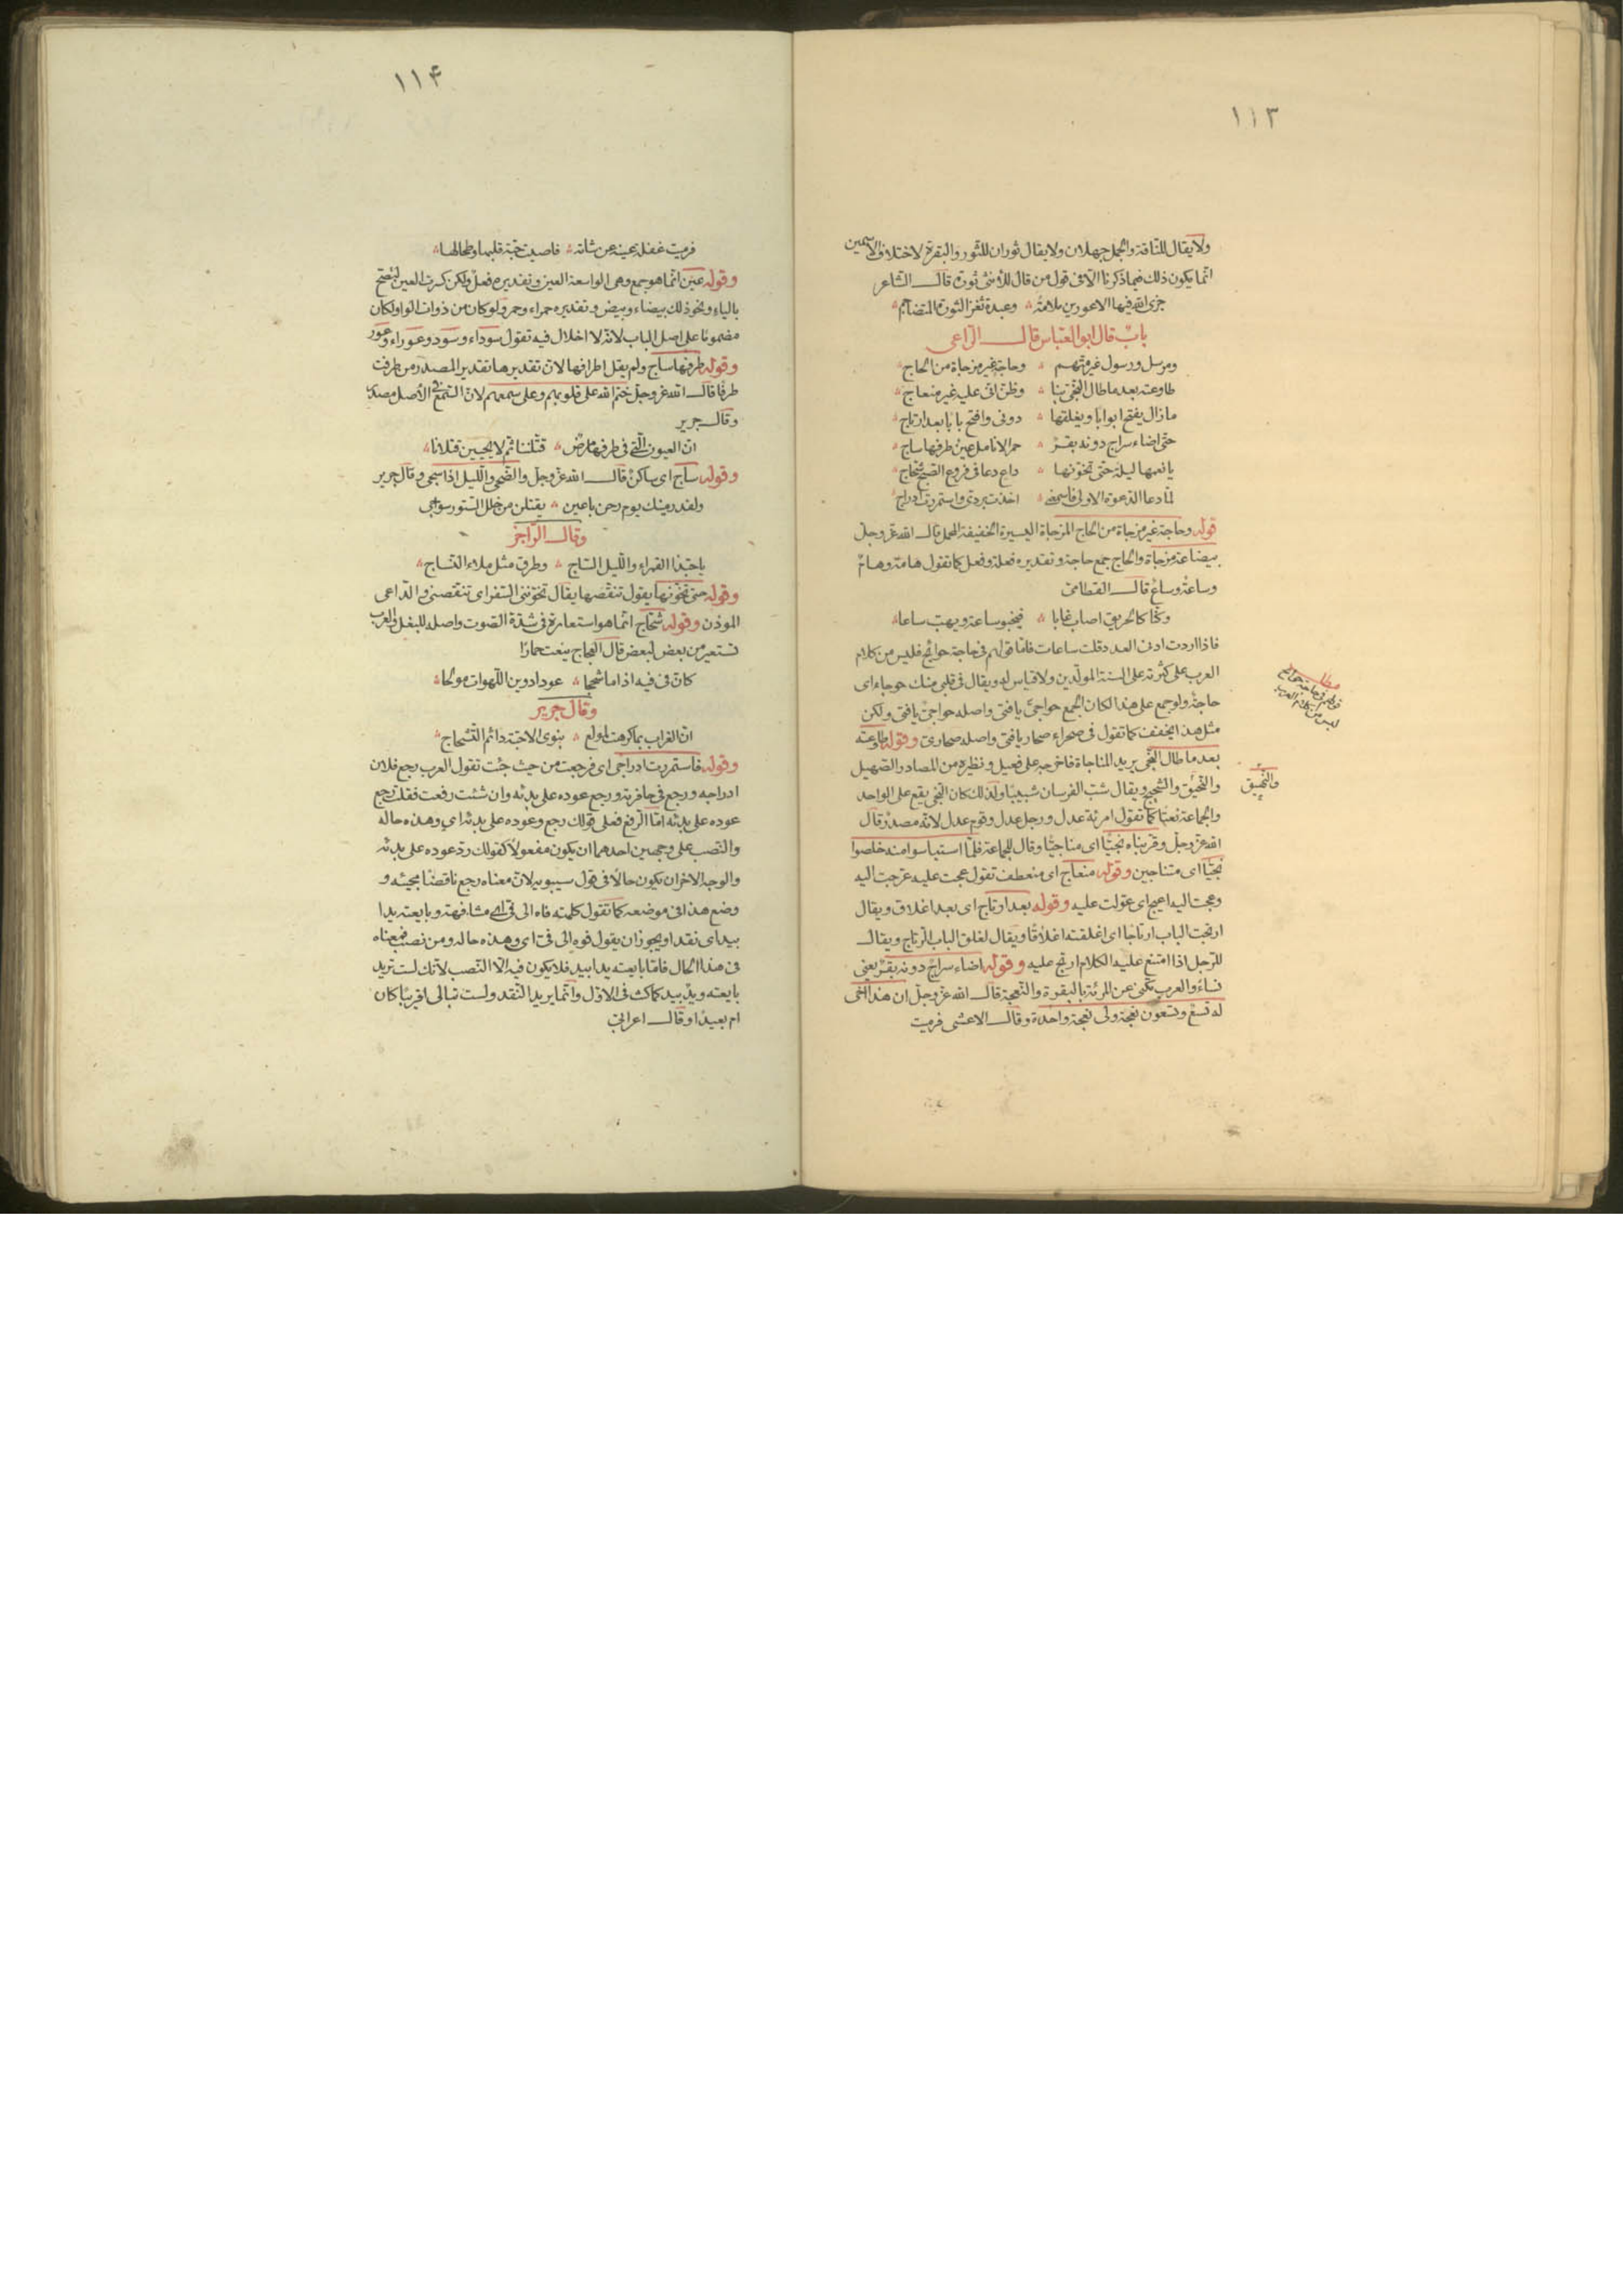 ١١٣
ولا يقال للناقة والجمل جملان ولا يقال ثوران للثور والبقرة لاختلاف الاسمين
انما يكون ذلك فيما ذكرنا الا فى قول من قال للانثى ثورة قال الشاعر
جزى الله فيها الاعورين ملامة ؞ وعبدة ثغر الثورة المتضاجم ؞
باب قال ابو العباس قال الراعى
ومرسل ورسول غير متهم ؞ وحاجة غير مزجاة من الحاج ؞
طاوعته بعد ما طال النجى بنا ؞ وظن انى عليه غير منعاج ؞
ما زال يفتح ابوابا ويغلقها ؞ دونى وافتح بابا بعد ارتاج ؞
حتى اضاء سراج دونه بقر ؞ حمر الانامل عين طرفها ساج ؞
يا نعمها ليلة حتى تخونها ؞ داع دعا فى فروع الصبح شحاج ؞
لما دعا الدعوة الاولى فاسمعنى ؞ اخذت بردى واستمررت ادراجى ؞
قوله وحاجة غير مزجاة من الحاج المزجاة اليسيرة الخفيفة المحمل قال الله عز وجل
ببضاعة مزجاة والحاج جمع حاجة وتقديره فعلة وفعل كما تقول هامة وهام
وساعة وساع قال القطامى
وكنا كالحريق اصاب غابا ؞ فيخبو ساعة ويهب ساعا ؞
فاذا اردت ادنى العدد قلت ساعات فاما قولهم فى حاجة حوائج فليس من كلام
العرب على كثرته على السنة المولدين ولا قياس له ويقال فى قلبى منك حوجاء اى
حاجة ولو جمع على هذا لكان الجمع حواجى يا فتى واصله حواجى يا فتى ولكن
مثل هذا يخفف كما تقول فى صحراء صحار يا فتى واصله صحارى وقوله طاوعته
بعد ما طال النجى يريد المناجاة فاخرجه على فعيل ونظيره من المصادر الصهيل
والنهيق والشحيج ويقال شب الفرسان شبيبا ولذلك كان النجى يقع على الواحد
والجماعة نعتا كما تقول امرئة عدل ورجل عدل وقوم عدل لانه مصدر قال
الله عز وجل وقربناه نجيا اى مناجيا وقال للجماعة فلما استيأسوا منه خلصوا
نجيا اى متناجين وقوله منعاج اى منعطف تقول عجت عليه عرجت اليه
وعجت اليه اعيج اى عولت عليه وقوله بعد ارتاج اى بعد اغلاق ويقال
ارتجت الباب ارتاجا اى اغلقته اغلاقا ويقال لغلق الباب الرتاج ويقال
للرجل اذا امتنع عليه الكلام ارتج عليه وقوله اضاء سراج دونه بقر يعنى
نساء والعرب تكنى عن المرئة بالبقرة والنعجة قال الله عز وجل ان هذا اخى
له تسع وتسعون نعجة ولى نعجة واحدة وقال الاعشى فرميت
قولهم فى حاجة حوائج
ليس من كلام العرب
والنهيق
١١۴
فرميت غفلة عينه عن شاته ؞ فاصبت حبة قلبها وطحالها ؞
وقوله عين انما هو جمع وهى الواسعة العين وتقديره فعل ولكن كسرت العين لتصح
بالياء ونحو ذلك بيضاء وبيض وتقديره حمراء وحمر ولو كان من ذوات الواو لكان
مضموما على اصل الباب لانه لا اخلال فيه تقول سوداء وسود وعوراء وعور
وقوله طرفها ساج ولم يقل اطرافها لان تقديرها تقدير المصدر من طرفت
طرفا قال الله عز وجل ختم الله على قلوبهم وعلى سمعهم لان السمع فى الاصل مصدر
وقال جرير
ان العيون التى فى طرفها مرض ؞ قتلننا ثم لا يحيين قتلانا ؞
وقوله ساج اى ساكن قال الله عز وجل والضحى والليل اذا سجى وقال جرير
ولقد رمينك يوم رحن باعين ؞ يقتلن من خلل الستور سواجى
وقال الراجز
يا حبذا القمراء والليل الساج ؞ وطرق مثل ملاء النساج ؞
وقوله حتى تخونها يقول تنقصها يقال تخوننى السفر اى تنقصنى والداعى
الموذن وقوله شحاج انما هو استعارة فى شدة الصوت واصله للبغل والعرب
تستعير من بعض لبعض قال العجاج ينعت حمارا
كان فى فيه اذا ما شحجا ؞ عودا دوين اللهوات مولجا ؞
وقال جرير
ان الغراب بما كرهت لمولع ؞ بنوى الاحبة دائم التشحاج ؞
وقوله فاستمررت ادراجى اى فرجعت من حيث جئت تقول العرب رجع فلان
ادراجه ورجع فى حافرته ورجع عوده على بدئه وان شئت رفعت فقلت رجع
عوده على بدئه اما الرفع فعلى قولك رجع وعوده على بدئه اى وهذه حاله
والنصب على وجهين احدهما ان يكون مفعولا كقولك رد عوده على بدئه
والوجه الاخر ان يكون حالا فى قول سيبويه لان معناه رجع ناقضا مجيئه و
وضع هذا فى موضعه كما تقول كلمته فاه الى فى اى مشافهة وبايعته يدا
بيد اى نقدا ويجوز ان يقول فوه الى فى اى وهذه حاله ومن نصب فمعناه
فى هذا الحال فاما بايعته يدا بيد فلا يكون فيه الا النصب لانك لست تريد
بايعته ويد بيد كما كنت فى الاول وانما يريد النقد ولست تبالى اقريبا كان
ام بعيدا وقال اعرابى